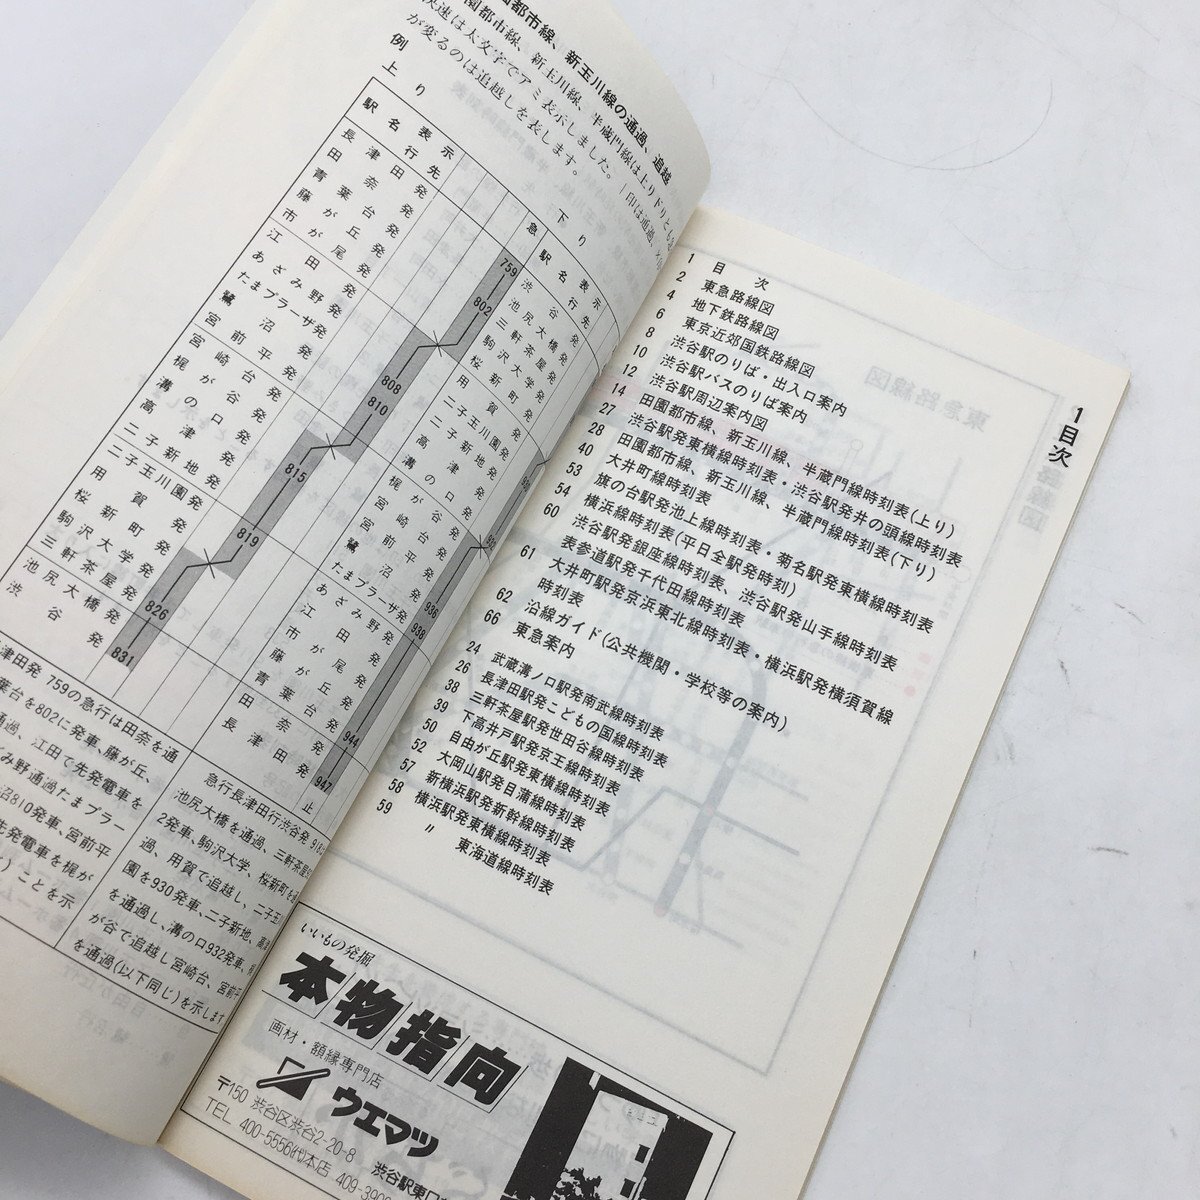 園都市線、新玉川線の通過、追越
園都市線、新玉川線、半蔵門線は上り下りとも
快速は太文字でアミ表示しました。｜印は通過、×
が変るのは追越しを表します。
例
上り
駅名表示
行先
長津田発
田奈発
青葉台発
藤が丘発
市が尾発
江田発
あざみ野発
たまプラーザ発
鷺沼発
宮前平発
宮崎台発
梶が谷発
溝の口発
高津発
二子新地発
二子玉川園発
用賀発
桜新町発
駒沢大学発
三軒茶屋発
池尻大橋発
渋谷発
759
802
808
810
815
819
826
831
下り
急
駅名表示
行先
渋谷発
池尻大橋発
三軒茶屋発
駒沢大学発
桜新町発
用賀発
二子玉川園発
二子新地発
高津発
溝の口発
梶が谷発
宮崎台発
宮前平発
鷺沼発
たまプラーザ発
あざみ野発
江田発
市が尾発
藤が丘発
青葉台発
田奈発
長津田止
936
938
944
947
津田発 759の急行は田奈を通
葉台を802に発車、藤が丘、
通過、江田で先発電車を
み野通過たまプラー
沼810発車、宮前平
先発電車を梶が
)ことを示
急行長津田行渋谷発 918
池尻大橋を通過、三軒茶屋
2発車、駒沢大学、桜新町を通
過、用賀で追越し、二子玉
園を930発車、二子新地、高津
を通過し、溝の口932発車、梶
が谷で追越し宮崎台、宮前平
を通過(以下同じ)を示します
1目次
1 目次
2 東急路線図
4 地下鉄路線図
6 東京近郊国鉄路線図
8 渋谷駅のりば・出入口案内
10 渋谷駅バスのりば案内
12 渋谷駅周辺案内図
14 田園都市線、新玉川線、半蔵門線時刻表(上り)
27 渋谷駅発東横線時刻表・渋谷駅発井の頭線時刻表
28 田園都市線、新玉川線、半蔵門線時刻表(下り)
40 大井町線時刻表
53 旗の台駅発池上線時刻表・菊名駅発東横線時刻表
54 横浜線時刻表(平日全駅発時刻)
60 渋谷駅発銀座線時刻表、渋谷駅発山手線時刻表
表参道駅発千代田線時刻表
61 大井町駅発京浜東北線時刻表・横浜駅発横須賀線
時刻表
62 沿線ガイド(公共機関・学校等の案内)
66 東急案内
24 武蔵溝ノ口駅発南武線時刻表
26 長津田駅発こどもの国線時刻表
38 三軒茶屋駅発世田谷線時刻表
39 下高井戸駅発京王線時刻表
50 自由が丘駅発東横線時刻表
52 大岡山駅発目蒲線時刻表
57 新横浜駅発新幹線時刻表
58 横浜駅発東横線時刻表
59 〃 東海道線時刻表
いいもの発掘
本物指向
画材・額縁専門店
ウエマツ
〒150 渋谷区渋谷2-20-8
TEL 400-5556(代)本店
渋谷駅東口